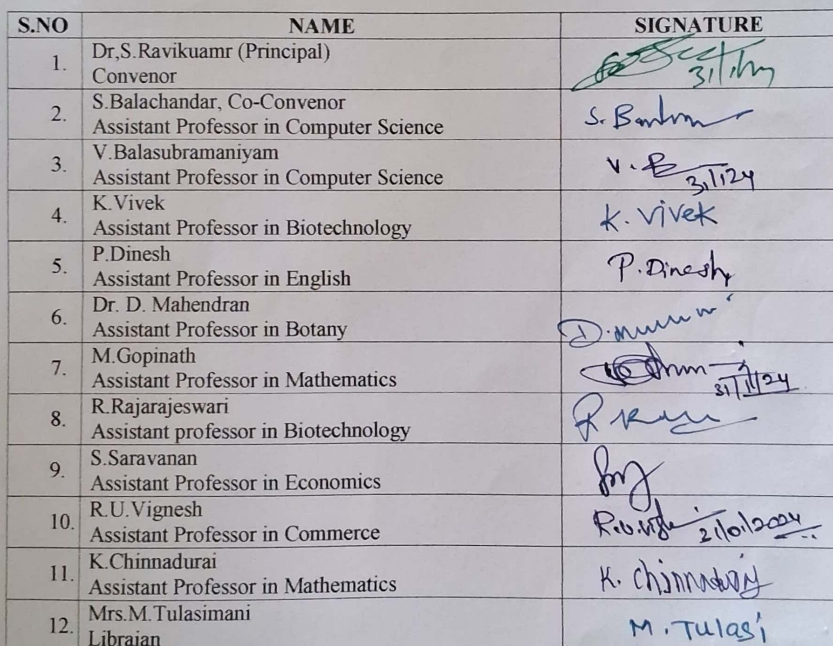 S.NO NAME SIGNATURE
1. Dr,S.Ravikuamr (Principal)
Convenor
31/1/24
2. S.Balachandar, Co-Convenor
Assistant Professor in Computer Science
3. V.Balasubramaniyam
Assistant Professor in Computer Science
V. B
31/1/24
4. K.Vivek
Assistant Professor in Biotechnology
K. Vivek
5. P.Dinesh
Assistant Professor in English
P.Dinesh
6. Dr. D. Mahendran
Assistant Professor in Botany
7. M.Gopinath
Assistant Professor in Mathematics
31/1/24
8. R.Rajarajeswari
Assistant professor in Biotechnology
9. S.Saravanan
Assistant Professor in Economics
10. R.U.Vignesh
Assistant Professor in Commerce
31/01/2024
11. K.Chinnadurai
Assistant Professor in Mathematics
K. Chinnadurai
12. Mrs.M.Tulasimani
Libraian
M. Tulasi